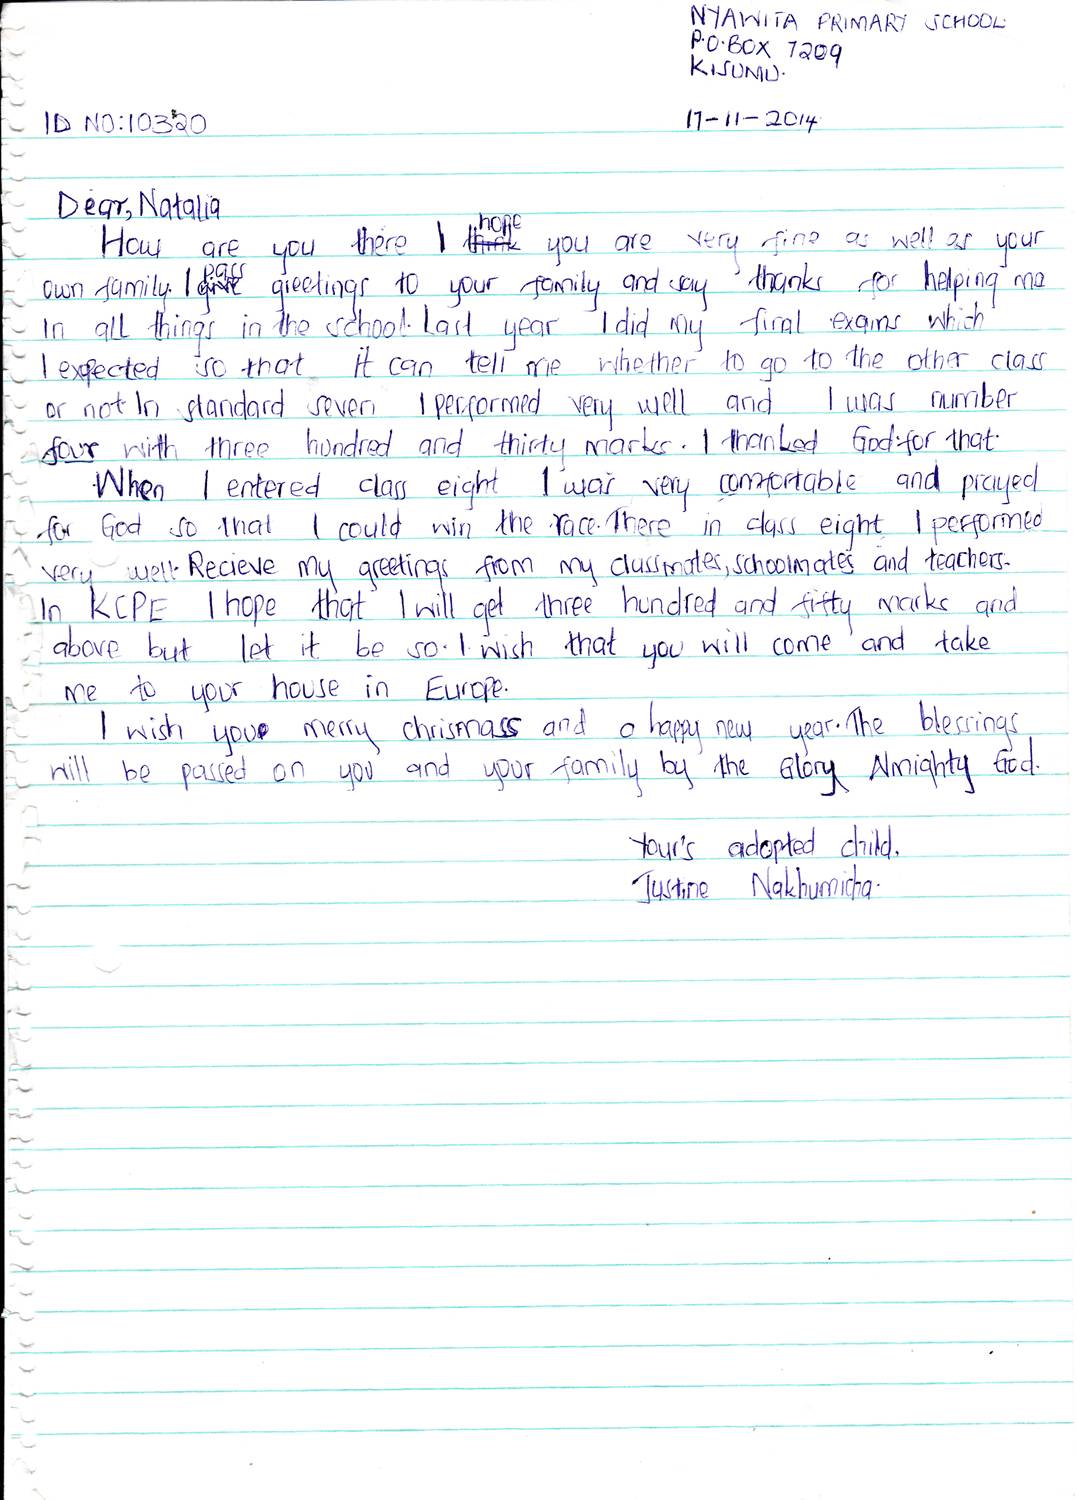 NYAWITA PRIMARY SCHOOL
P.O.BOX 7209
KISUMU.
ID NO:10320
17-11-2014
Dear, Natalia
How are you there I think hope you are very fine as well as your
own family. I give pass greetings to your family and say thanks for helping me
In all things in the school. Last year I did my final exams which
I expected so that it can tell me whether to go to the other class
or not In standard seven I performed very well and I was number
four with three hundred and thirty marks. I thanked God for that.
When I entered class eight I was very comfortable and prayed
for God so that I could win the race. There in class eight I performed
very well. Recieve my greetings from my classmates, schoolmates and teachers.
In KCPE I hope that I will get three hundred and fifty marks and
above but let it be so. I wish that you will come and take
me to your house in Europe.
I wish you merry chrismass and a happy new year. The blessings
will be passed on you and your family by the Glory Almighty God.
Your's adopted child.
Justine Nakhumicha.